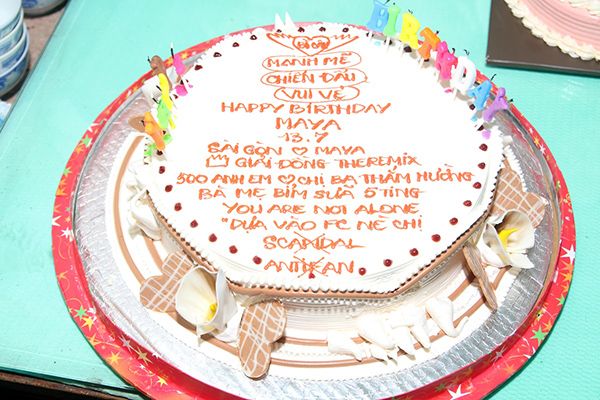 MẠNH MẼ
CHIẾN ĐẤU
VUI VẺ
HAPPY BIRTHDAY
MAYA
13.7
SÀI GÒN ♡ MAYA
GIẢI ĐỒNG THEREMIX
500 ANH EM ♡ CHỊ BẠ THẮM HƯỜNG
BÀ MẸ BỈM SỮA 5 TỈNG
YOU ARE NOT ALONE
"DỰA VÀO FC NÈ CHỊ
SCANDAL
ANTIFAN
BIRTHDAY